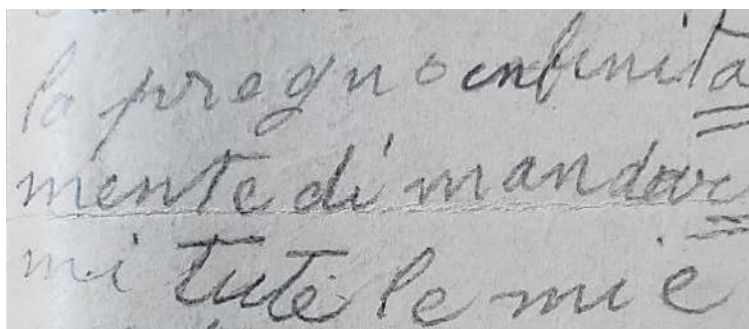 la pregno infinita
mente di mandar
mi tute le mie